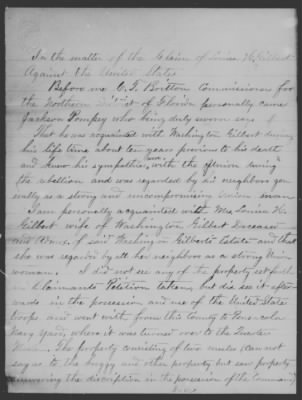 In the matter of the Claim of Louisa H. Gilbert
Against the United States
Before me C. F. Boutton Commissioner for
the Northern District of Florida personally came
Jackson Pompey who being duly sworn says
That he was acquainted with Washington Gilbert during
his life time about ten years previous to his death
and knew his sympathies were with the Union during
the rebellion and was regarded by his neighbors gen
erally as a strong and uncompromising Union man
I am personally acquainted with Mrs Louisa H.
Gilbert wife of Washington Gilbert Deceased
and Admx. of said Washington Gilberts Estate and that
she was regarded by all her neighbors as a strong Union
woman. I did not see any of the property set forth
in Claimants Petition taken, but did see it after-
wards in the possession and use of the United States
troops and went with it from this County to Pensacola
Navy yard, where it was turned over to the
The property consisting of two mules (can not
say as to the buggy and other property but saw property
answering the discription in the possession of the Command)